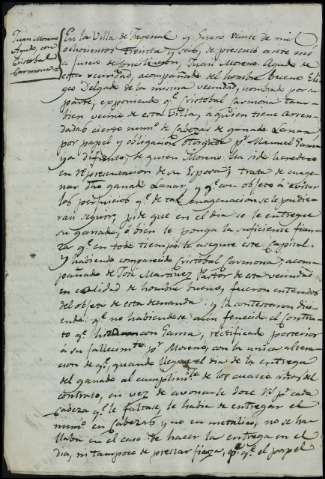 Juan Moreno
Agudo, con
Cristobal
Carmona
En la Villa de y Enero veinte de mil
ochocientos treinta y seis, se presentó ante mi
a juicio de Conciliación, Juan Moreno Agudo de
esta vecindad, acompañado del hombre bueno Eli-
seo Delgado de la misma vecindad, nombrado por su
parte, exponiendo qe. Cristobal Carmona tam-
bien vecino de esta Villa, a quien tiene arren-
dadas cierto numo. de Cabezas de ganado Lanar,
por papel y obligacion otorgado pr. Manuel Parra
ya difunto, de quien Moreno ha sido heredero
en representacion de su Esposa; trata de enage-
nar dho ganado Lanar, y qe. con objeto a evitar
los perjuicios qe. de tal enagenacion se le pudie-
ran seguir, pide que en el dia se le entregue
su ganado, o bien se ponga la suficiente fian-
za qe. en todo tiempo le asegure este Capital.
Y habiendo comparecido Cristobal Carmona, acom-
pañado de José Martinez Pastor de esta vecindad
en calidad de hombre bueno, fueron enterados
del objeto de esta demanda: y la contestaron dicien-
do: qe. no habiendose aun fenecido el contrato
qe. con Parra, rectificado posterior
a su fallecimto. pr. Moreno, con la unica altera-
cion de qe. quando llegase el dia de la entrega
del ganado al cumplimto. de los cuatro años del
contrato, en vez de abonarle doce rs. pr. cada
Cabeza qe. le faltase, le habia de entregar el
numero en Cabezas y no en metalico, no se ha-
llaba en el caso de hacer la entrega en el
dia, ni tampoco de prestar fianza, pr. qe. el papel